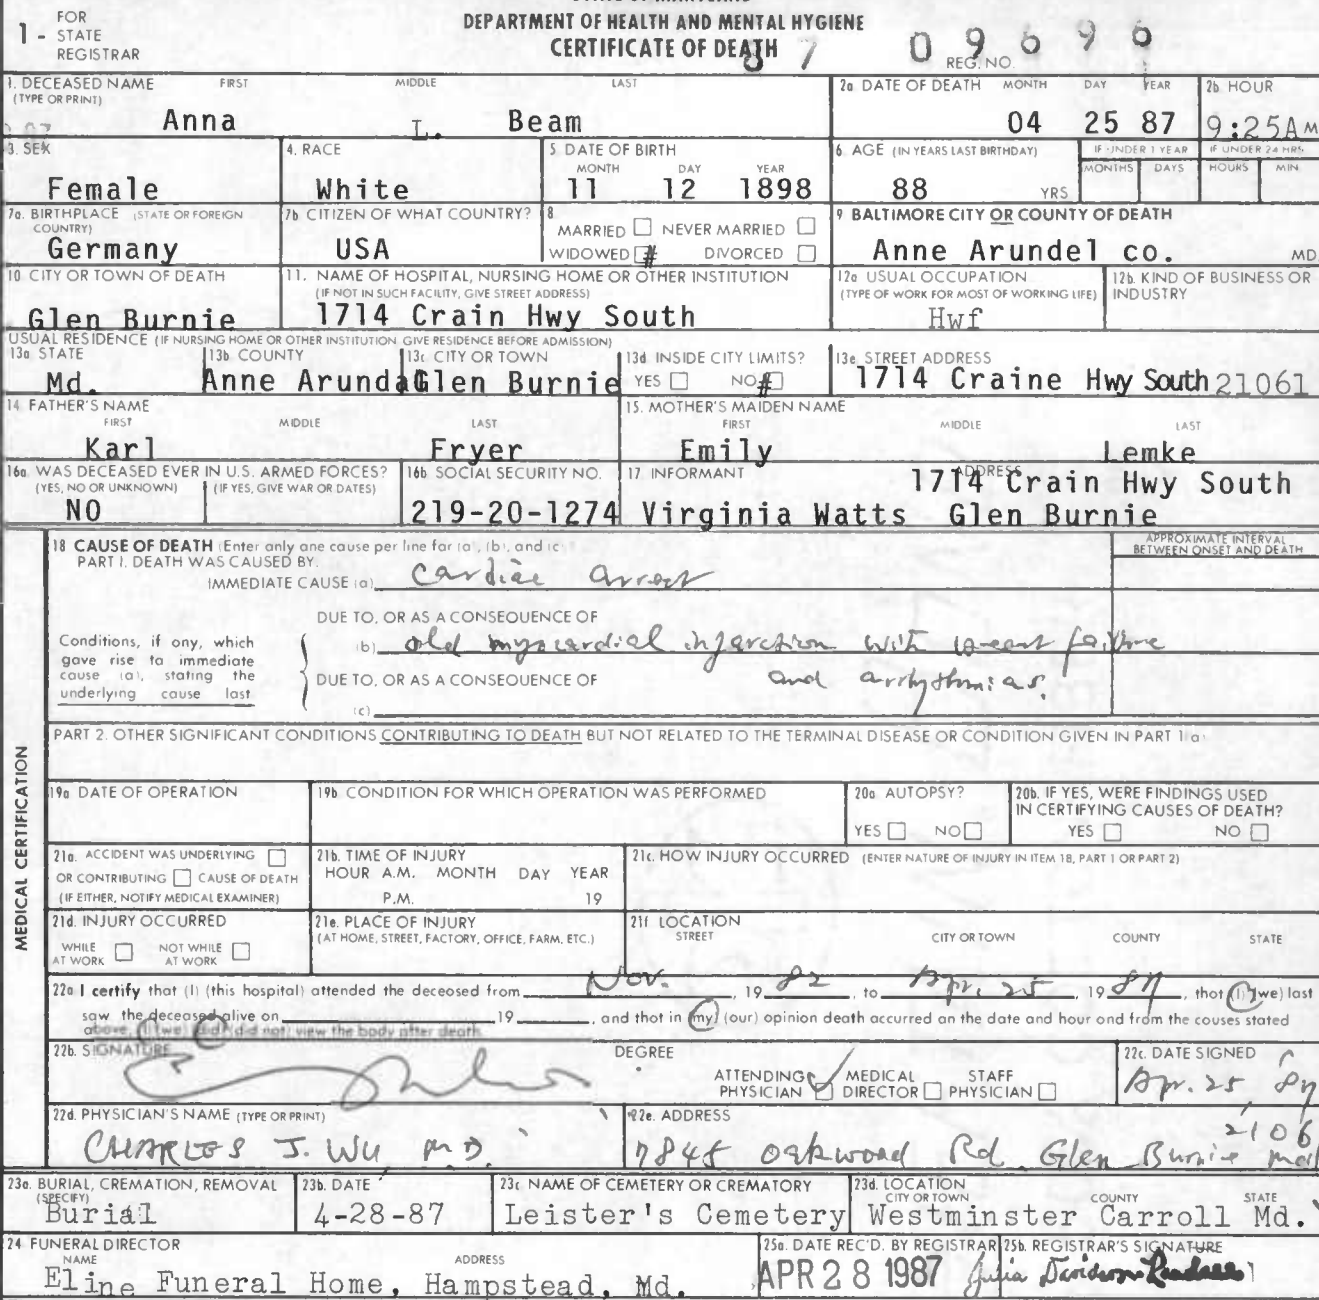 DEPARTMENT OF HEALTH AND MENTAL HYGIENE
CERTIFICATE OF DEATH
1 - FOR STATE REGISTRAR
87 09696
REG. NO.
1. DECEASED NAME (TYPE OR PRINT) FIRST MIDDLE LAST
Anna L. Beam
2a DATE OF DEATH MONTH DAY YEAR
04 25 87
2b HOUR
9:25A M
3. SEX
Female
4. RACE
White
5 DATE OF BIRTH MONTH DAY YEAR
11 12 1898
6 AGE (IN YEARS LAST BIRTHDAY)
88 YRS
IF UNDER 1 YEAR MONTHS DAYS
IF UNDER 24 HRS. HOURS MIN
7a. BIRTHPLACE (STATE OR FOREIGN COUNTRY)
Germany
7b CITIZEN OF WHAT COUNTRY?
USA
8 MARRIED NEVER MARRIED
WIDOWED # DIVORCED
9 BALTIMORE CITY OR COUNTY OF DEATH
Anne Arundel co. MD
10 CITY OR TOWN OF DEATH
Glen Burnie
11. NAME OF HOSPITAL, NURSING HOME OR OTHER INSTITUTION
(IF NOT IN SUCH FACILITY, GIVE STREET ADDRESS)
1714 Crain Hwy South
12a USUAL OCCUPATION
(TYPE OF WORK FOR MOST OF WORKING LIFE)
Hwf
12b. KIND OF BUSINESS OR INDUSTRY
USUAL RESIDENCE (IF NURSING HOME OR OTHER INSTITUTION GIVE RESIDENCE BEFORE ADMISSION)
13a STATE
Md.
13b COUNTY
Anne Arundal
13c CITY OR TOWN
Glen Burnie
13d INSIDE CITY LIMITS?
YES NO #
13e STREET ADDRESS
1714 Craine Hwy South 21061
14 FATHER'S NAME FIRST MIDDLE LAST
Karl Fryer
15. MOTHER'S MAIDEN NAME FIRST MIDDLE LAST
Emily Lemke
16a WAS DECEASED EVER IN U.S. ARMED FORCES?
(YES, NO OR UNKNOWN) (IF YES, GIVE WAR OR DATES)
NO
16b SOCIAL SECURITY NO.
219-20-1274
17 INFORMANT ADDRESS
1714 Crain Hwy South
Virginia Watts Glen Burnie
MEDICAL CERTIFICATION
18 CAUSE OF DEATH (Enter only one cause per line for (a), (b), and (c))
APPROXIMATE INTERVAL BETWEEN ONSET AND DEATH
PART I. DEATH WAS CAUSED BY:
IMMEDIATE CAUSE (a) Cardiac arrest
DUE TO, OR AS A CONSEQUENCE OF
Conditions, if any, which gave rise to immediate cause (a), stating the underlying cause last
(b) old myocardial infarction with heart failure
DUE TO, OR AS A CONSEQUENCE OF and arrhythmias.
(c)
PART 2. OTHER SIGNIFICANT CONDITIONS CONTRIBUTING TO DEATH BUT NOT RELATED TO THE TERMINAL DISEASE OR CONDITION GIVEN IN PART 1(a)
19a DATE OF OPERATION
19b. CONDITION FOR WHICH OPERATION WAS PERFORMED
20a AUTOPSY?
YES NO
20b. IF YES, WERE FINDINGS USED IN CERTIFYING CAUSES OF DEATH?
YES NO
21a. ACCIDENT WAS UNDERLYING
OR CONTRIBUTING CAUSE OF DEATH
(IF EITHER, NOTIFY MEDICAL EXAMINER)
21b. TIME OF INJURY
HOUR A.M. MONTH DAY YEAR
P.M. 19
21c. HOW INJURY OCCURRED (ENTER NATURE OF INJURY IN ITEM 18, PART 1 OR PART 2)
21d. INJURY OCCURRED
WHILE AT WORK NOT WHILE AT WORK
21e. PLACE OF INJURY
(AT HOME, STREET, FACTORY, OFFICE, FARM, ETC.)
21f LOCATION
STREET CITY OR TOWN COUNTY STATE
22a I certify that (I) (this hospital) attended the deceased from Nov. , 19 82 , to Apr. 25 , 19 87 , that (I) (we) last
saw the deceased alive on 19 , and that in (my) (our) opinion death occurred on the date and hour and from the causes stated
above, (I) (we) (did) (did not) view the body after death.
22b. SIGNATURE
DEGREE
ATTENDING PHYSICIAN MEDICAL DIRECTOR STAFF PHYSICIAN
22c. DATE SIGNED
Apr. 25, 87
22d. PHYSICIAN'S NAME (TYPE OR PRINT)
CHARLES J. WU M.D.
22e. ADDRESS
7845 Oakwood Rd. Glen Burnie Md 2106
23a. BURIAL, CREMATION, REMOVAL (SPECIFY)
Burial
23b. DATE
4-28-87
23c NAME OF CEMETERY OR CREMATORY
Leister's Cemetery
23d. LOCATION CITY OR TOWN COUNTY STATE
Westminster Carroll Md.
24 FUNERAL DIRECTOR
NAME ADDRESS
Eline Funeral Home, Hampstead, Md.
25a. DATE REC'D. BY REGISTRAR
APR 28 1987
25b. REGISTRAR'S SIGNATURE
Julia Davidson Randall